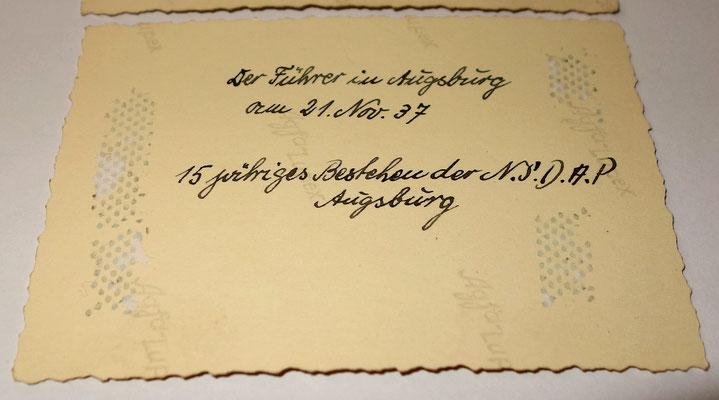 Der Führer in Augsburg
am 21. Nov. 37
15 jähriges Bestehen der N.S.D.A.P
Augsburg